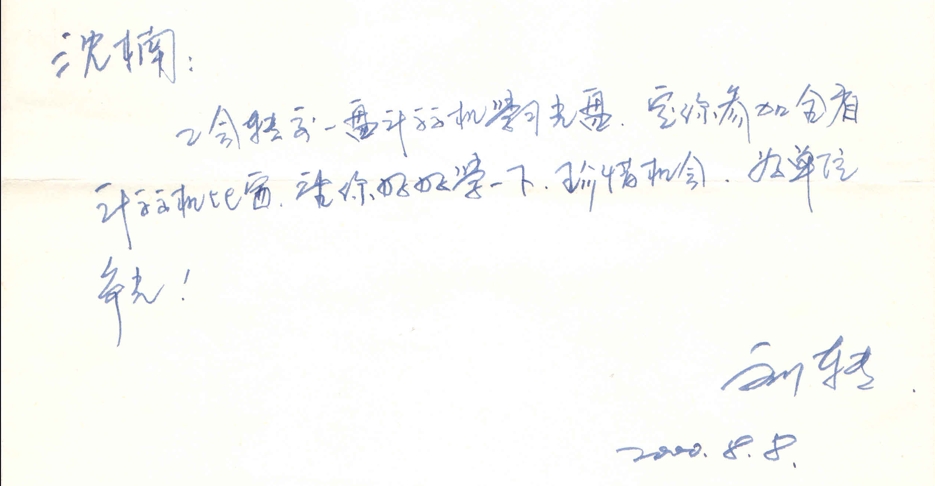 沈楠：
工会转交一盘计算机学习光盘．定你参加全省
计算机比赛．请你好好学一下．珍惜机会．为单位
争光！
刘
2000.8.8.